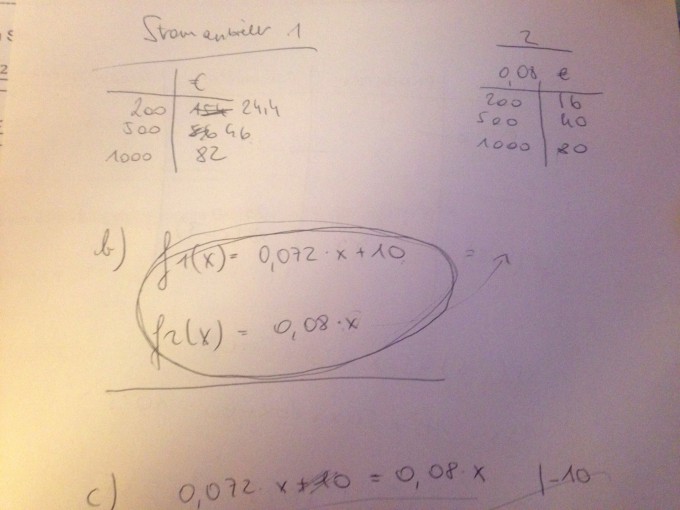 Stromanbieter 1
€
200 24,4
500 46
1000 82
2
0,08 €
200 16
500 40
1000 80
b) f1(x) = 0,072 · x + 10 =
f2(x) = 0,08 · x
c) 0,072 · x + 10 = 0,08 · x |-10